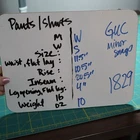 Pants/Shorts
M W
Size: M S
waist, flat lay: 11.5"
Rise: 10.5"
Inseam: 20.5"
Leg opening, flat lay: 4"
Weight lb
oz 10
GUC
minor
snags
1829